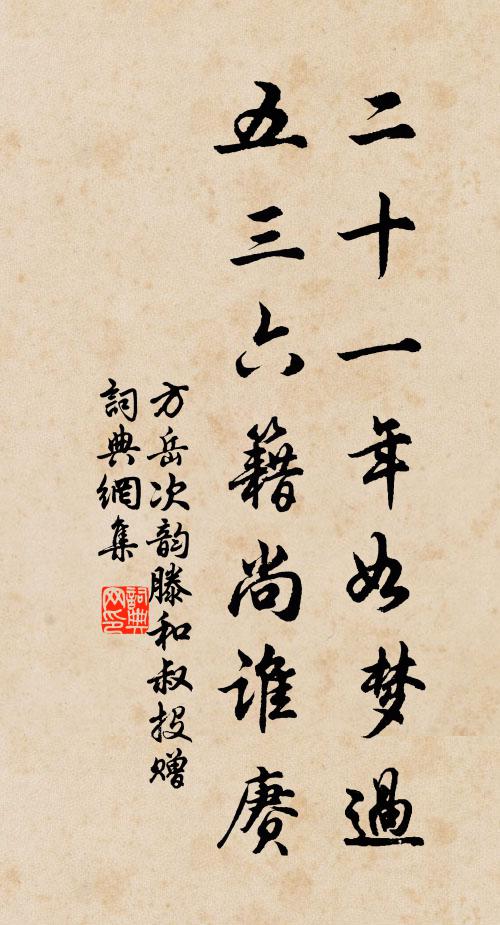 二十一年如梦過
五三六籍尚誰賡
方岳次韵滕和叔投赠
詞典網集
詞典
网印